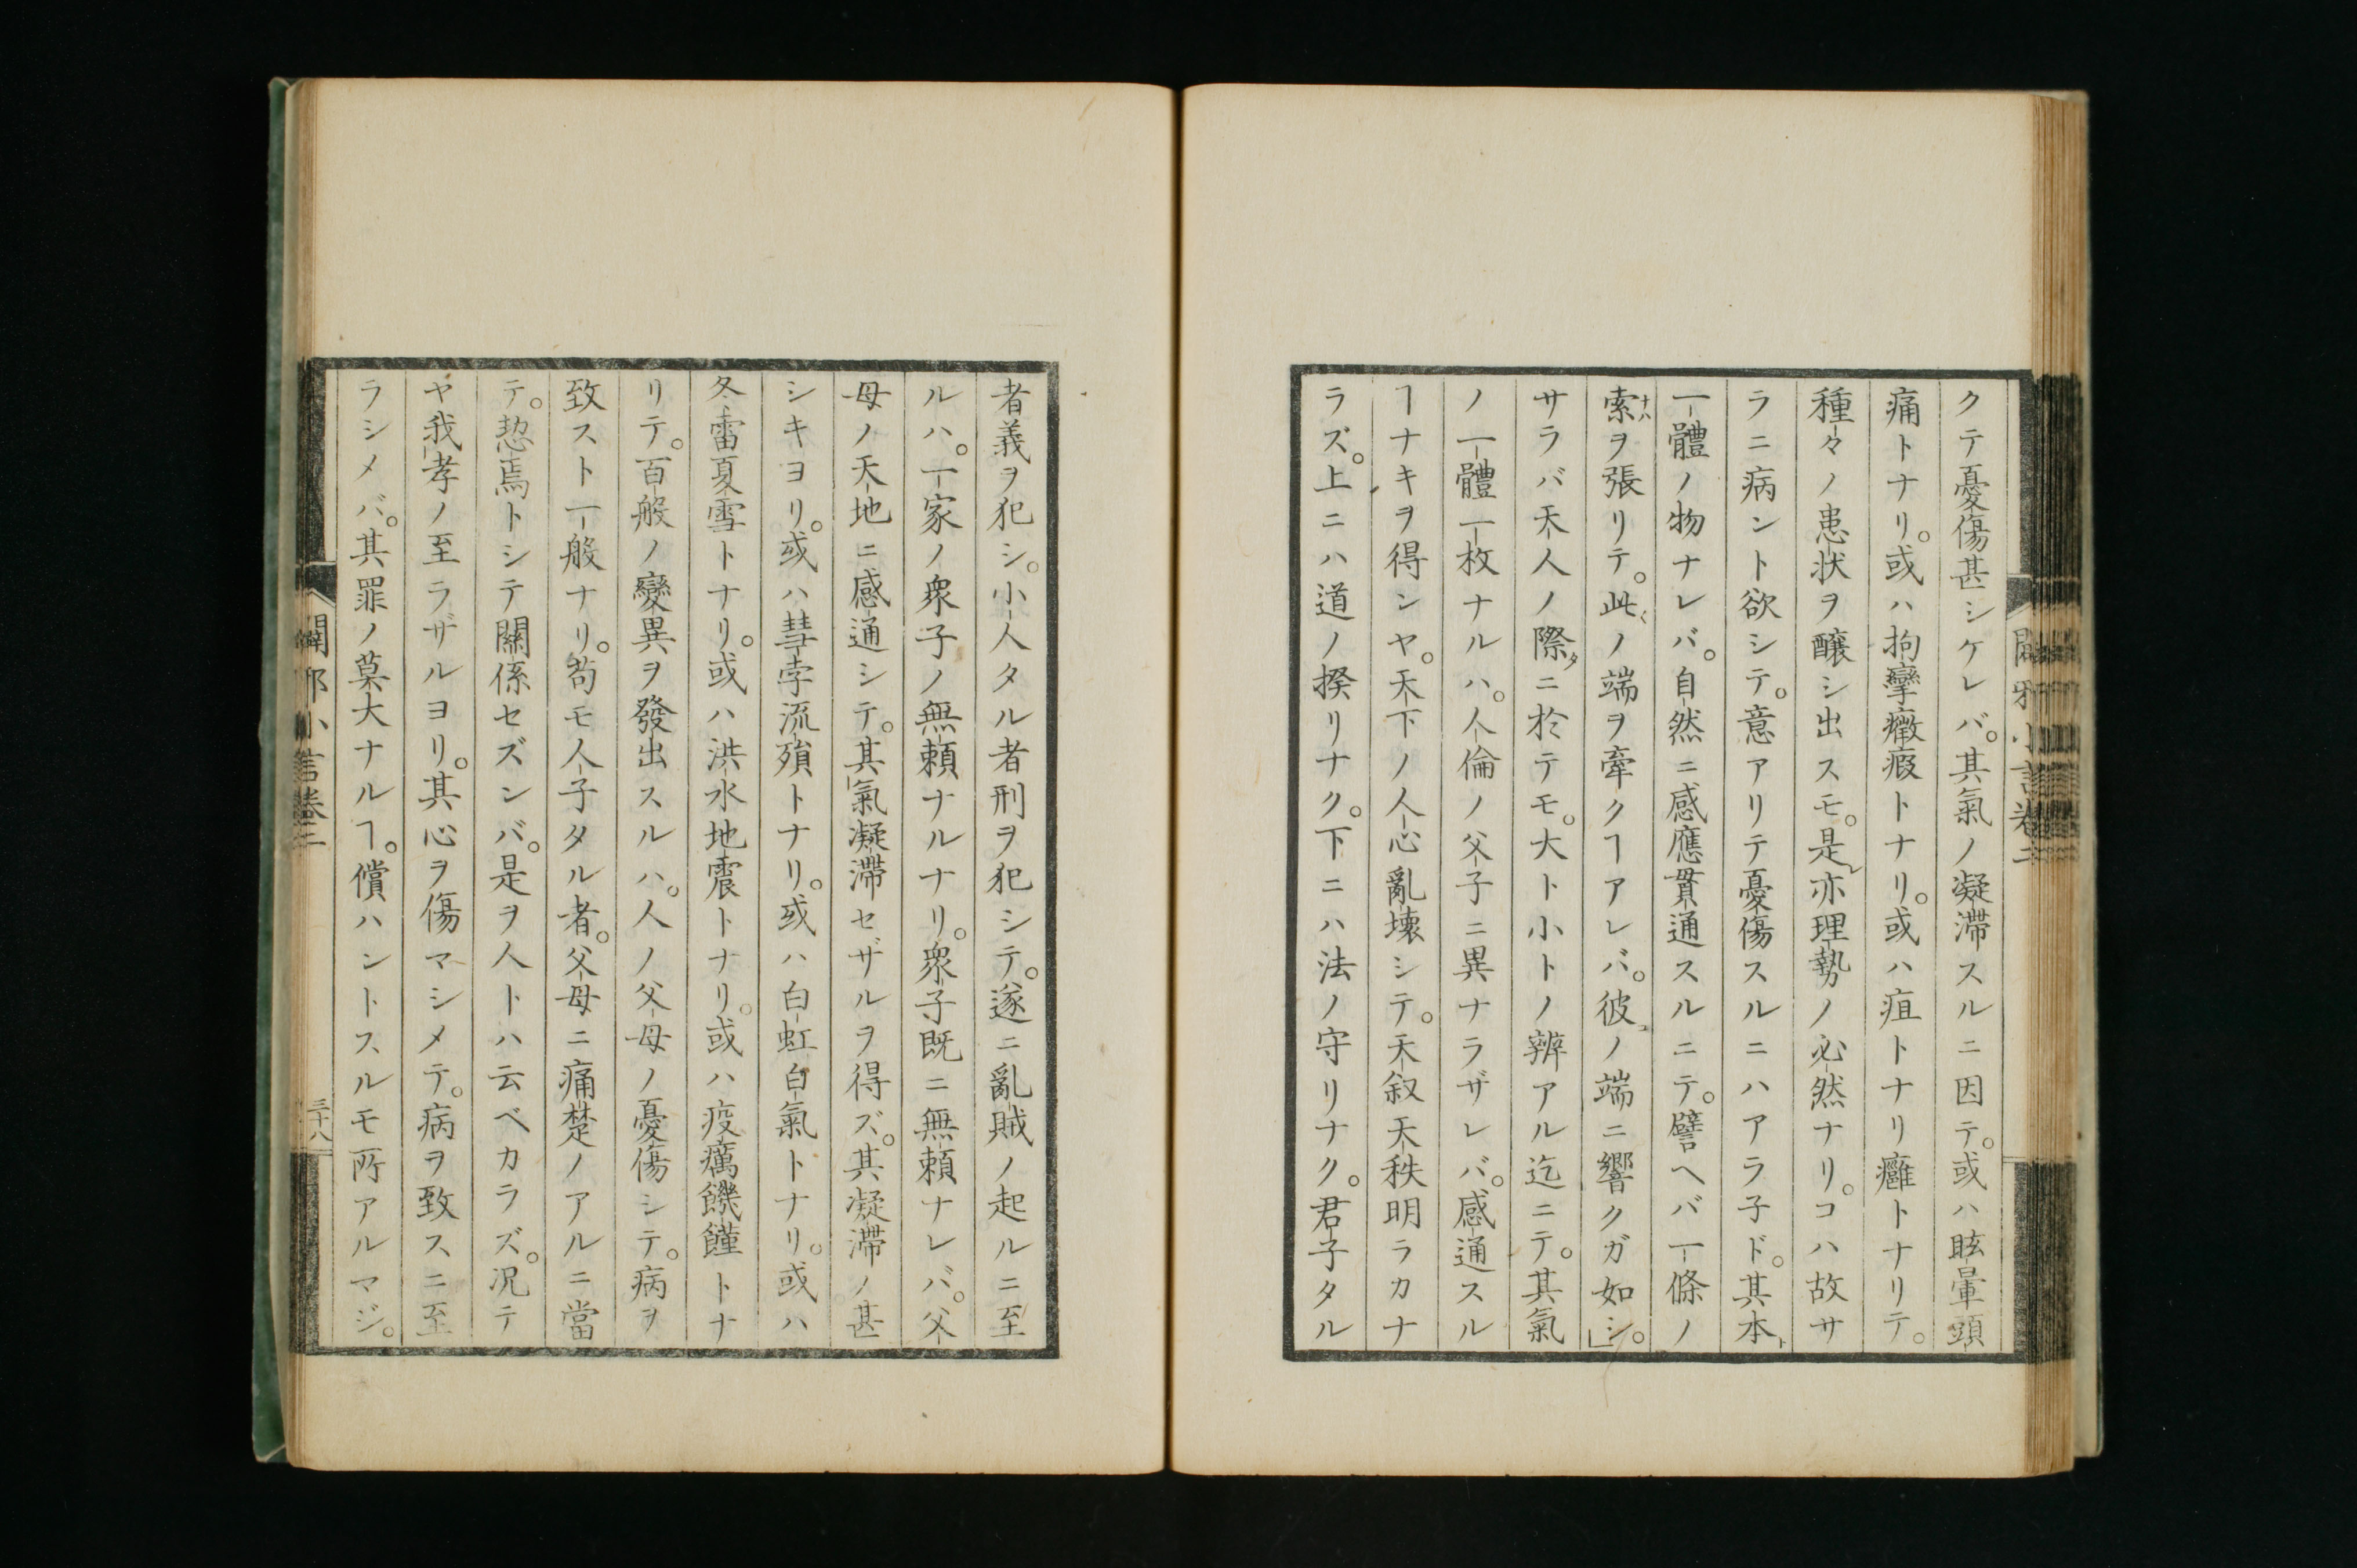 闢邪小言卷二
クテ憂傷甚シケレバ。其氣ノ凝滯スルニ因テ。或ハ眩暈頭
痛トナリ。或ハ拘攣癥瘕トナリ。或ハ疽トナリ癰トナリテ。
種々ノ患状ヲ釀シ出スモ。是レ亦理勢ノ必然ナリ。コハ故サ
ラニ病ント欲シテ。意アリテ憂傷スルニハアラ子ド。其本ト
一體ノ物ナレバ。自然ニ感應貫通スルニテ。譬ヘバ一條ノ
索ナハヲ張リテ。此クノ端ヲ牽クヿアレバ。彼コノ端ニ響クガ如シ。」
サラバ天人ノ際タニ於テモ。大ト小トノ辨アル迄ニテ。其氣
ノ一體一枚ナルハ。人倫ノ父子ニ異ナラザレバ。感通スル
ヿナキヲ得ンヤ。天下ノ人心亂壞シテ。天叙天秩明ラカナ
ラズ。上ニハ道ノ揆リナク。下ニハ法ノ守リナク。君子タル
者義ヲ犯シ。小人タル者刑ヲ犯シテ。遂ニ亂賊ノ起ルニ至
ルハ。一家ノ衆子ノ無頼ナルナリ。衆子既ニ無頼ナレバ。父
母ノ天地ニ感通シテ。其氣凝滯セザルヲ得ズ。其凝滯ノ甚
シキヨリ。或ハ彗孛流殞トナリ。或ハ白虹白氣トナリ。或ハ
冬雷夏雪トナリ。或ハ洪水地震トナリ。或ハ疫癘饑饉トナ
リテ。百般ノ變異ヲ發出スルハ。人ノ父母ノ憂傷シテ。病ヲ
致スト一般ナリ。苟モ人子タル者。父母ニ痛楚ノアルニ當
テ。恝焉トシテ關係セズンバ。是ヲ人トハ云ベカラズ。況テ
ヤ我孝ノ至ラザルヨリ。其心ヲ傷マシメテ。病ヲ致スニ至
ラシメバ。其罪ノ莫大ナルヿ。償ハントスルモ所アルマジ。
闢邪小言卷二
三十八